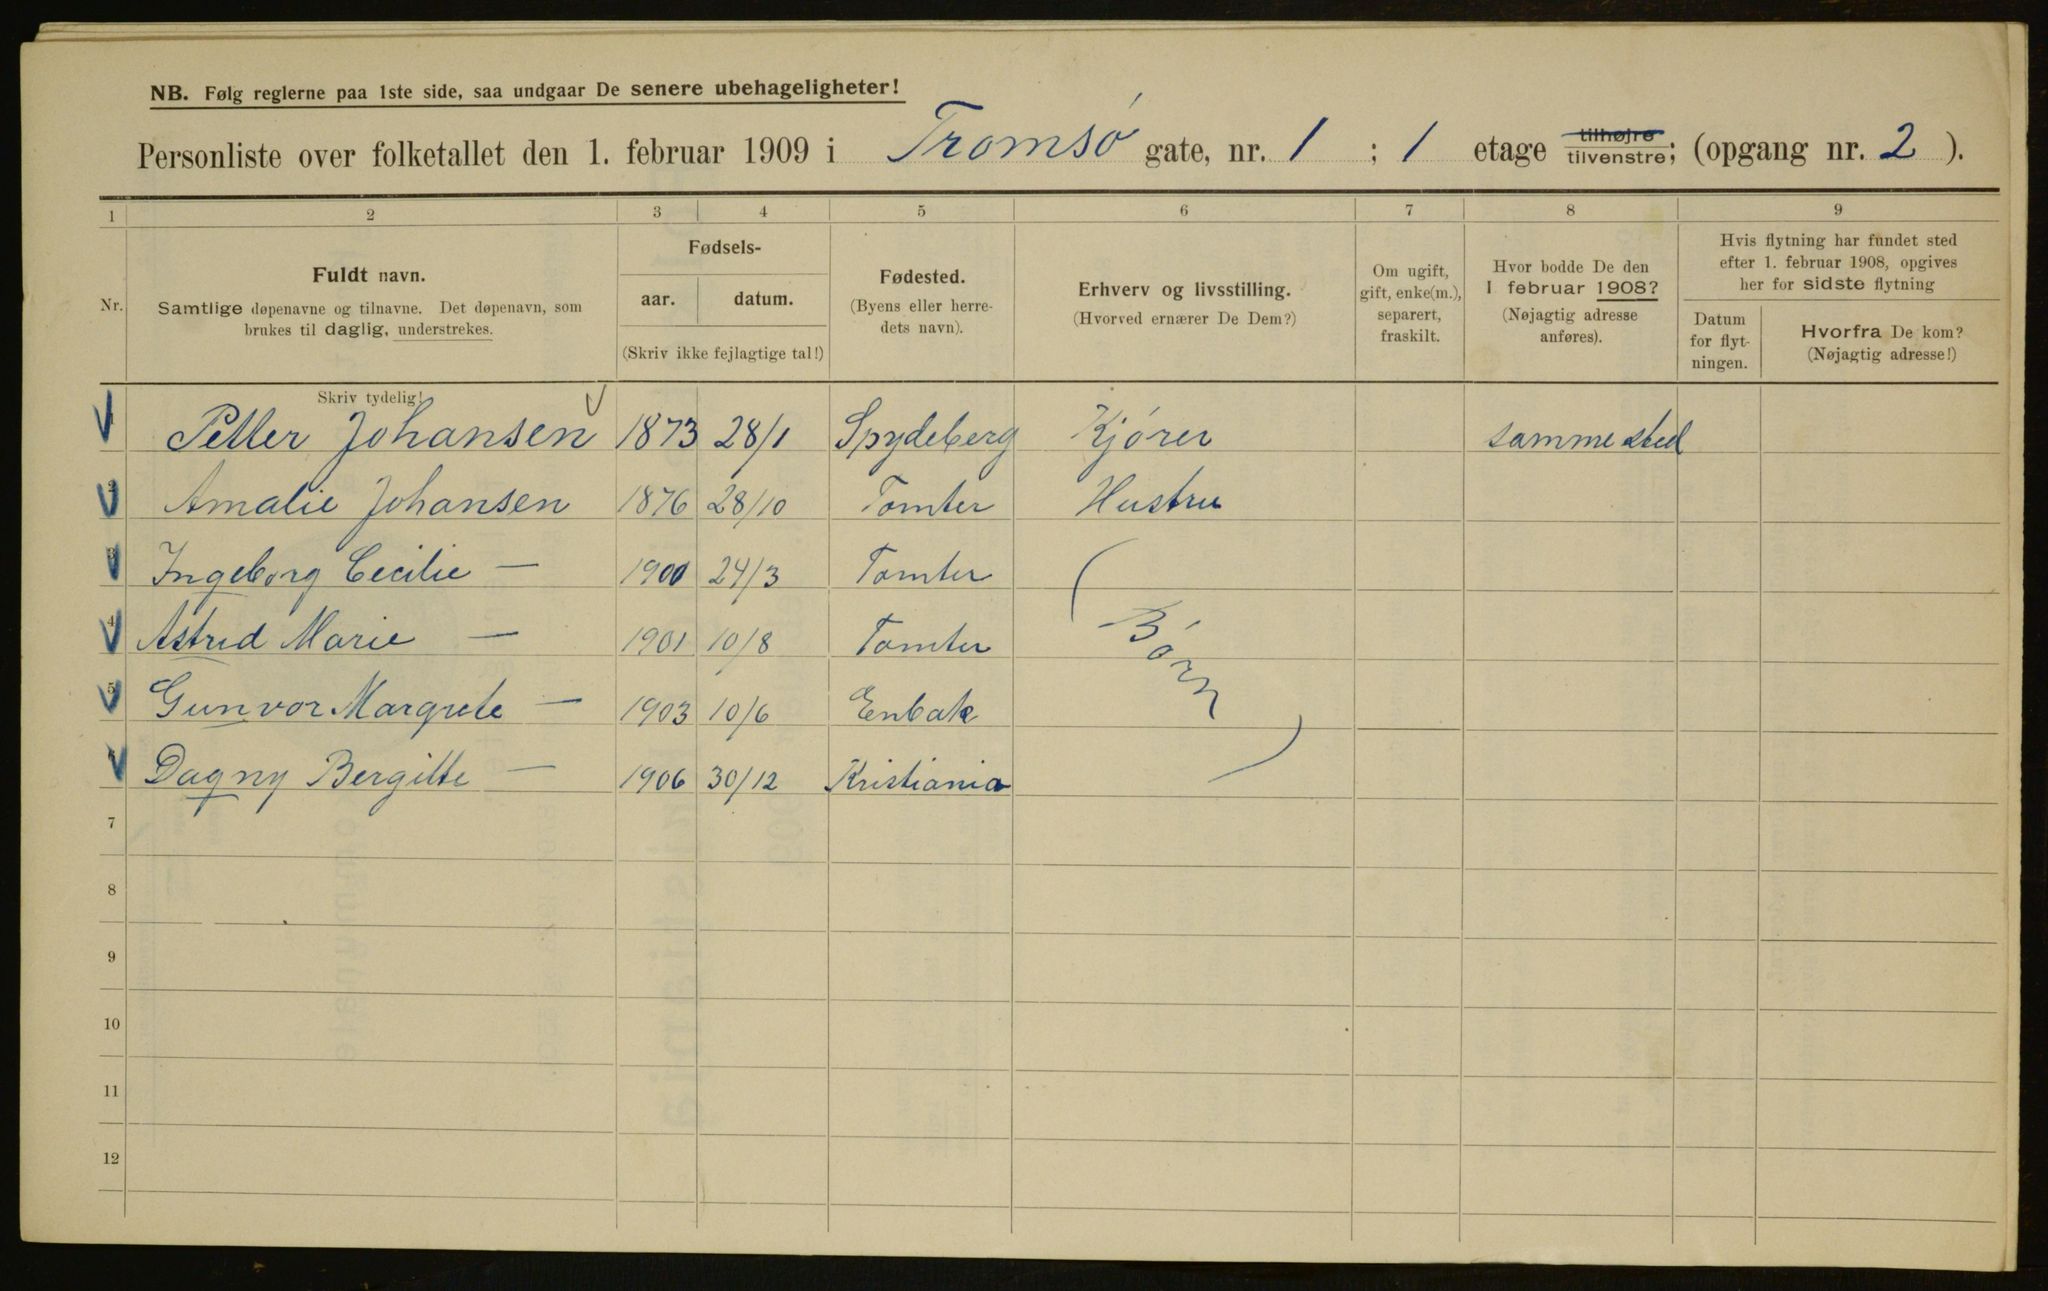 NB. Følg reglerne paa 1ste side, saa undgaar De senere ubehageligheter!
Personliste over folketallet den 1. februar 1909 i Tromsø gate, nr. 1 ; 1 etage tilhøjre tilvenstre; (opgang nr. 2 ).
1 2 3 4 5 6 7 8 9
Nr.
Fuldt navn.
Samtlige døpenavne og tilnavne. Det døpenavn, som
brukes til daglig, understrekes.
Fødsels-
aar. datum.
(Skriv ikke fejlagtige tal!)
Fødested.
(Byens eller herre-
dets navn).
Erhverv og livsstilling.
(Hvorved ernærer De Dem?)
Om ugift,
gift, enke(m.),
separert,
fraskilt.
Hvor bodde De den
1 februar 1908?
(Nøjagtig adresse
anføres).
Hvis flytning har fundet sted
efter 1. februar 1908, opgives
her for sidste flytning
Datum
for flyt-
ningen.
Hvorfra De kom?
(Nøjagtig adresse!)
Skriv tydelig!
1 Petter Johansen 1873 28/1 Spydeberg Kjører samme sted
2 Amalie Johansen 1876 28/10 Tomter Hustru
3 Ingeborg Cecilie — 1900 24/3 Tomter
4 Astrid Marie — 1901 10/8 Tomter Børn
5 Gunvor Margrete — 1903 10/6 Enbak
6 Dagny Bergitte — 1906 30/12 Kristiania
7
8
9
10
11
12